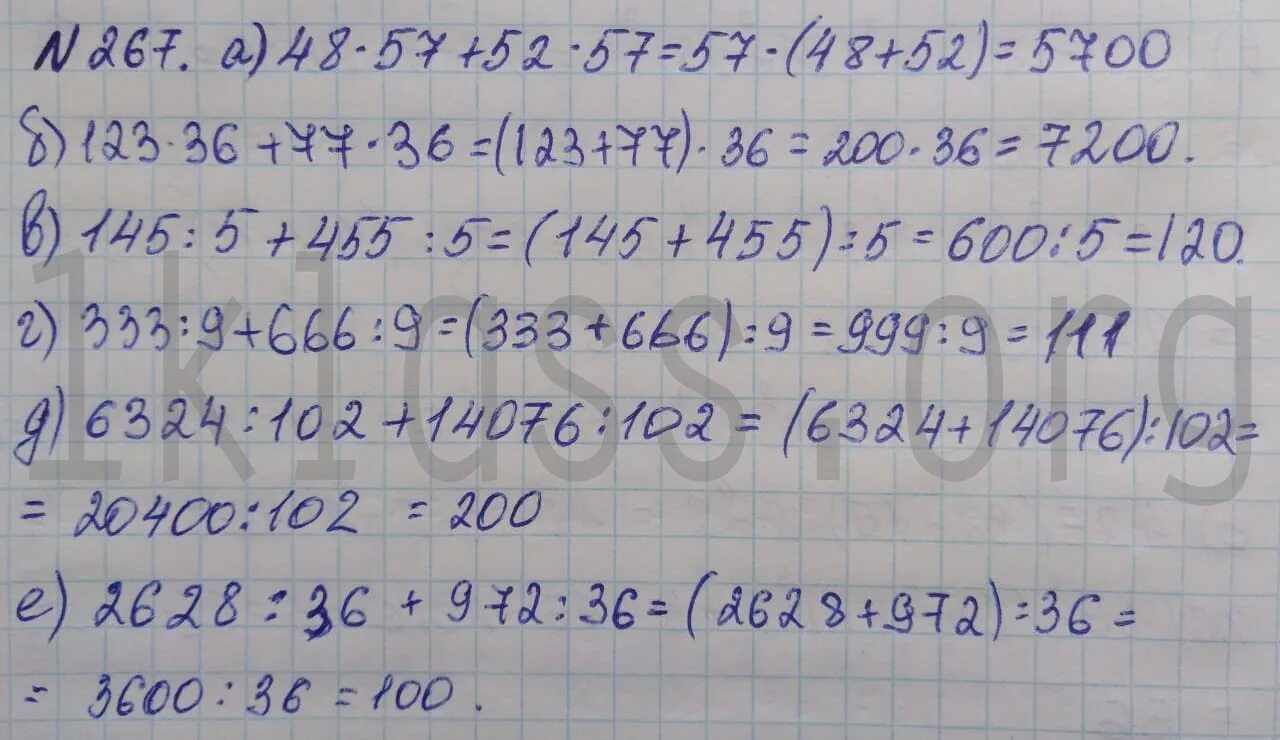 N 267. а) 48·57+52·57=57·(48+52)=5700
б) 123·36+77·36=(123+77)·36=200·36=7200.
в) 145:5+455:5=(145+455):5=600:5=120.
г) 333:9+666:9=(333+666):9=999:9=111
1klass.org
д) 6324:102+14076:102=(6324+14076):102=
=20400:102=200
е) 2628:36+972:36=(2628+972):36=
=3600:36=100.